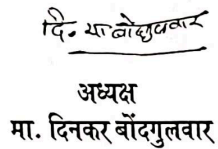 दि. या बोंदगुलवार
अध्यक्ष
मा. दिनकर बोंदगुलवार